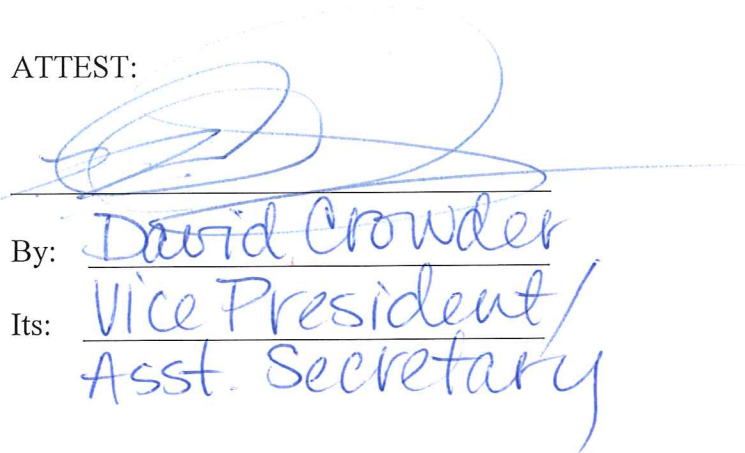 ATTEST:
By: David Crowder
Its: Vice President/
Asst. Secretary